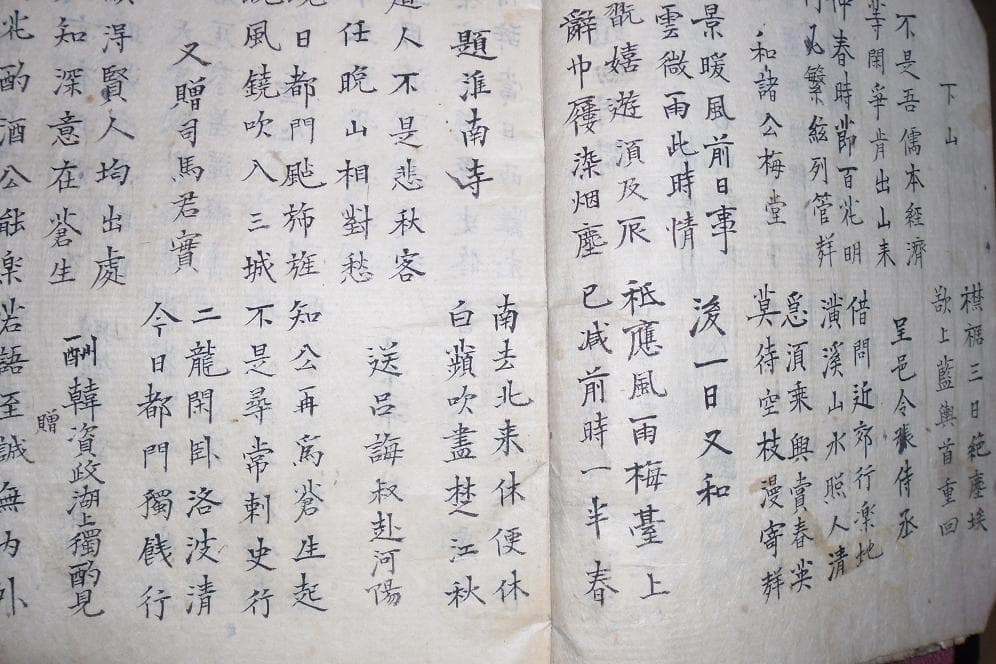 下山
襟裾三日絶塵埃
欲上藍輿首重回
不是吾儒本経濟
等閑爭肯出山来
呈邑令張侍丞
仲春時節百花明
必繁絃列管群
借問近郊行楽地
潢溪山水照人清
和諸公梅堂
急須乗興賞春英
莫待空枝漫寄群
景暖風前日事
雲微雨此時情
後一日又和
嬉遊須及辰
辭巾屨染烟塵
祗應風雨梅臺上
已减前時一半春
題淮南寺
南去北来休便休
白蘋吹盡楚江秋
人不是悲秋客
任晩山相對愁
送呂誨叔赴河陽
日都門颭旆旌
風鐃吹入三城
知公再為蒼生起
不是尋常刺史行
又贈司馬君實
二龍閑卧洛波清
今日都門獨餞行
得賢人均出處
知深意在蒼生
酬韓資政湖上獨酌見
贈
花酌酒公能楽
若語至誠無内外